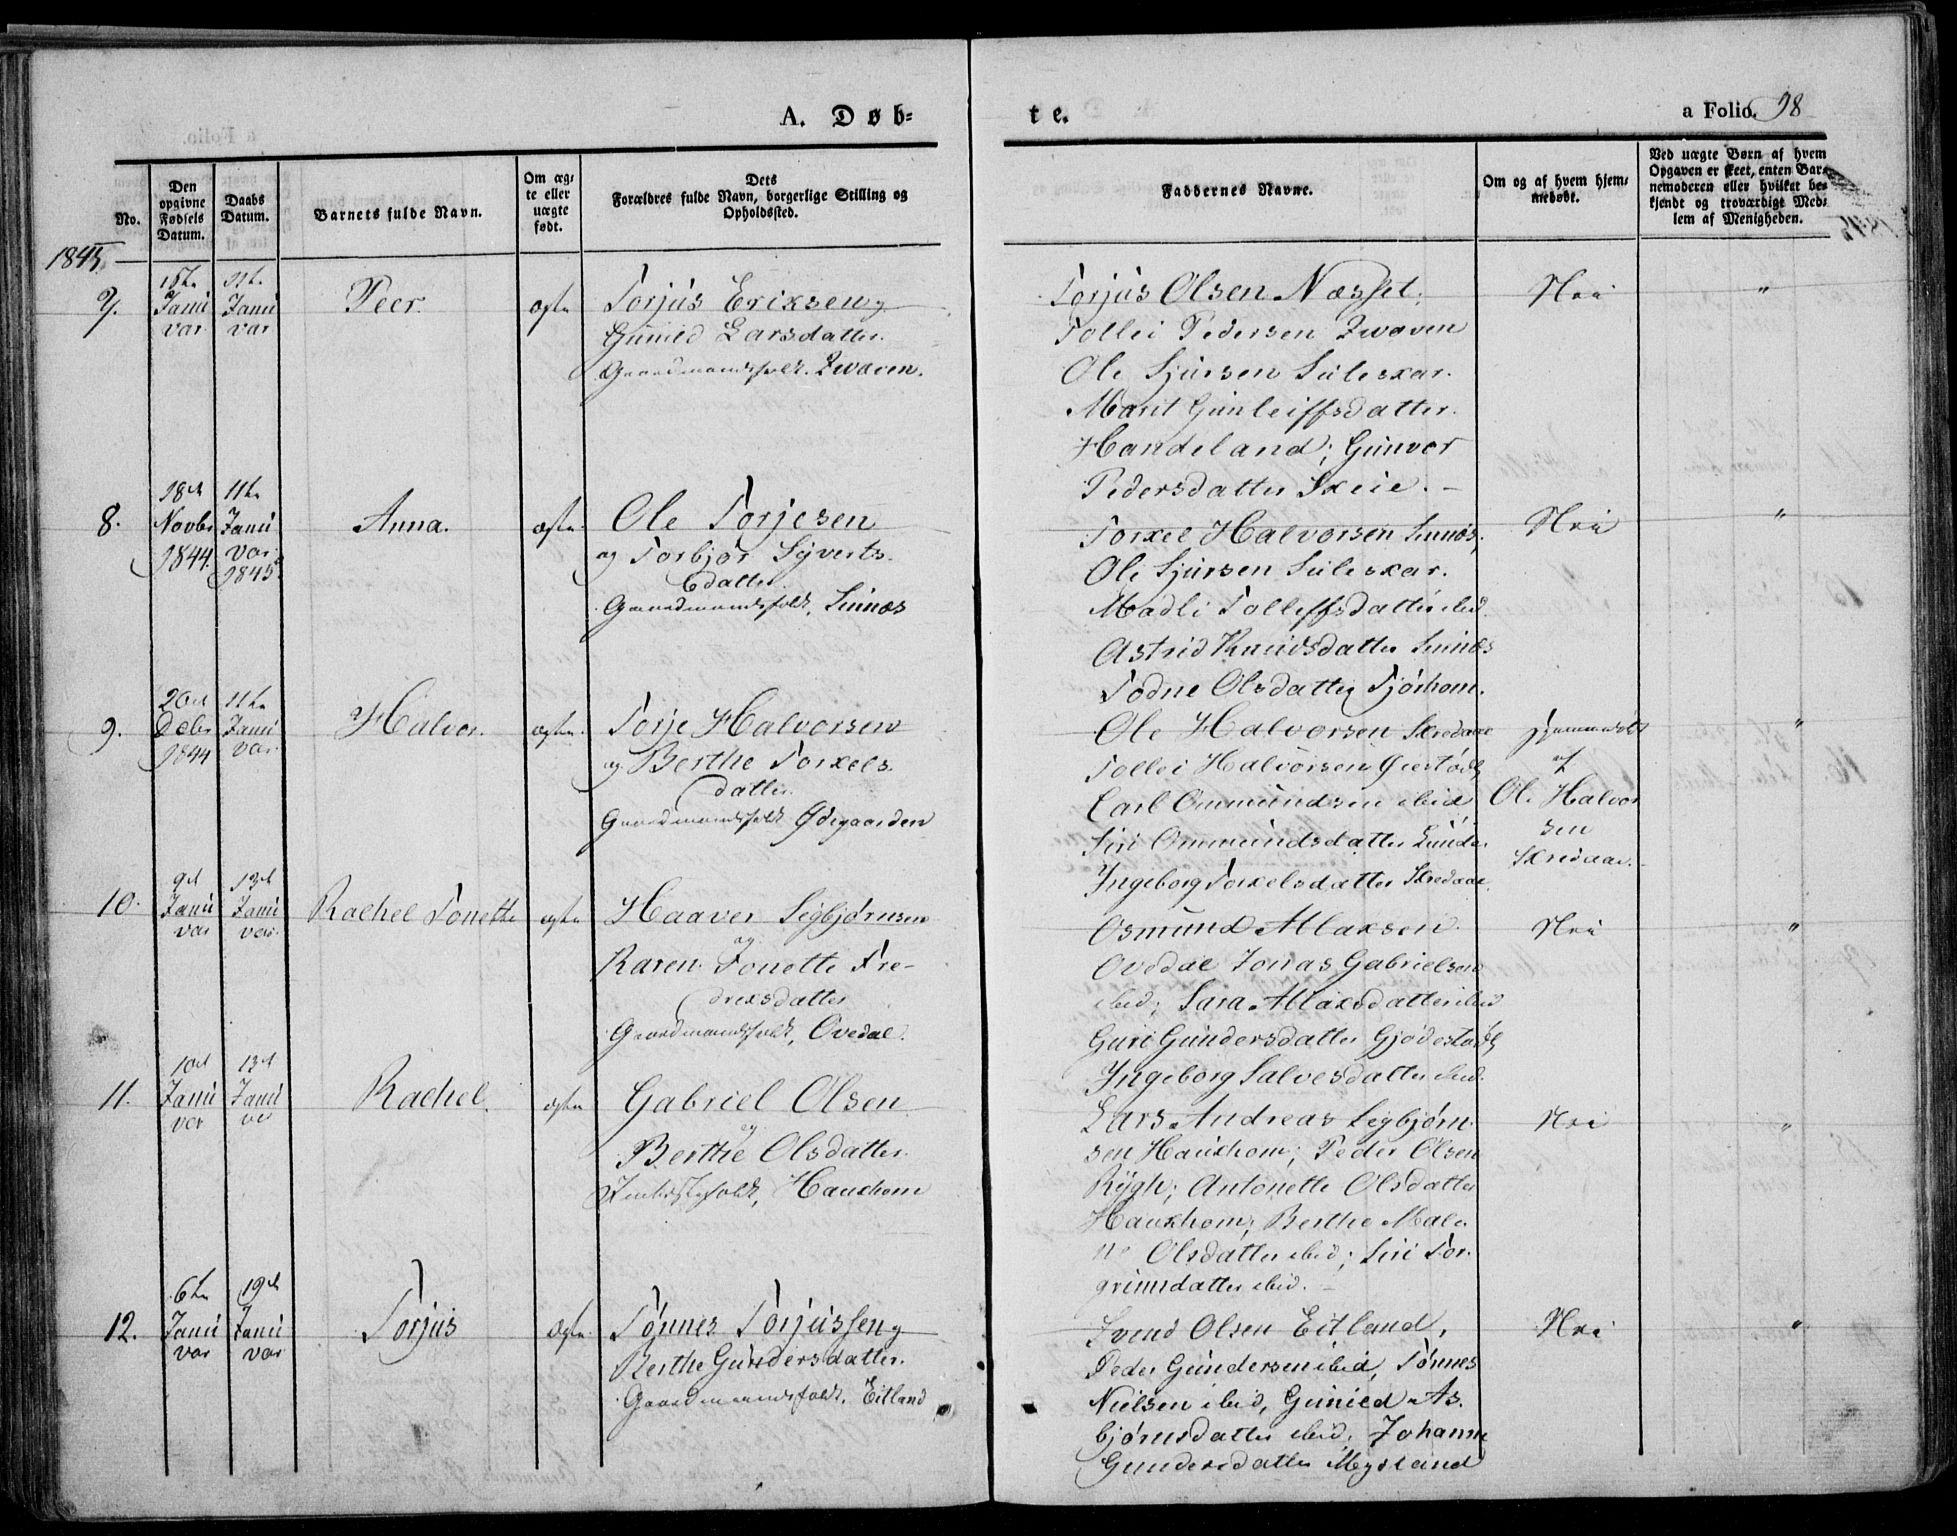 A. Døb=
te.
a Folio. 98
No.
Den opgivne Fødsels Datum.
Daabs Datum.
Barnets fulde Navn.
Om æg- te eller uægte født.
Dets Forældres fulde Navn, borgerlige Stilling og Opholdssted.
Faddernes Navne.
Om og af hvem hjem- medøbt.
Ved uægte Børn af hvem Opgaven er skeet, enten Bar- nemoderen eller hvilket be- kjendt og troværdigt Med- lem af Menigheden.
1845
7.
Janu
var
Janu
var
Peer.
ægte
Torjus Eriksen
Gunild Larsdatter.
Gaardmandsfolk. Zwaven.
Torjus Olsen Næsset;
Tollei Pedersen Zwaven
Ole Sjursen Suleskar.
Marit Gunleiffsdatter
Handeland; Gunvor
Pedersdatter Skeie. –
Nei
"
8.
18de
Novbr
1844.
11te
Janu
var
1845
Anna.
ægte.
Ole Torjesen
og Torbjør Syverts-
datter
Gaardmandsfolk, Sinnæs
Torkel Halvorsen Sinnæs;
Ole Sjursen Suleskar.
Madli Tolleffsdatter ibid.
Astrid Knudsdatter Sinnæs
Todne Olsdatter Tjørhom.
Nei
"
9.
20de
Decbr
1844
11te
Janu
var
Halvor.
ægte.
Torje Halvorsen
og Berthe Torkels-
datter.
Gaardmandsfolk Ødegaarden
Ole Halvorsen Skredaae
Tollei Halvorsen
Carl Ommundsen ibid
Siri Ommundsdatter Lunde
Ingeborg Torkelsdatter Skredaae.
Hjemmedøbt
af
Ole Halvor
sen
Skredaae.
"
10.
9de
Janu
var
13de
Janu
var.
Rachel Tonette
ægte
Haaver Sigbjørnsen
og
Karen Tonette Fre-
drksdatter
Gaardmandsfolk, Ovedal.
Osmund Alaksen
Ovedal Jonas Gabrielsen
ibid; Sara Alaksdatter ibid
Guri Gundersdatter Gjødestøl
Ingeborg Salvesdatter ibid.
Nei
"
11.
10de
Janu
var
13de
Janu
var
Rachel.
ægte.
Gabriel Olsen
og
Berthe Olsdatter
Inderstefolk, Haukhom
Lars Andreas Sigbjørn-
sen Haukhom; Peder Olsen
Rygh; Antonette Olsdatter
Haukhom; Berthe Male-
ne Olsdatter ibid; Siri Tor-
grimsdatter ibid. –
Nei
"
12.
6te
Janu
var
19de
Janu
var
Torjus
ægte.
Tønnes Torjussen
Berthe Gundersdatter.
Gaardmandsfolk. Eitland
Svend Olsen Eitland,
Peder Gundersen ibid, Tønnes
Nielsen ibid, Gunild As-
bjørnsdatter ibid. Johanne
Gundersdatter Mysland
Nei
"